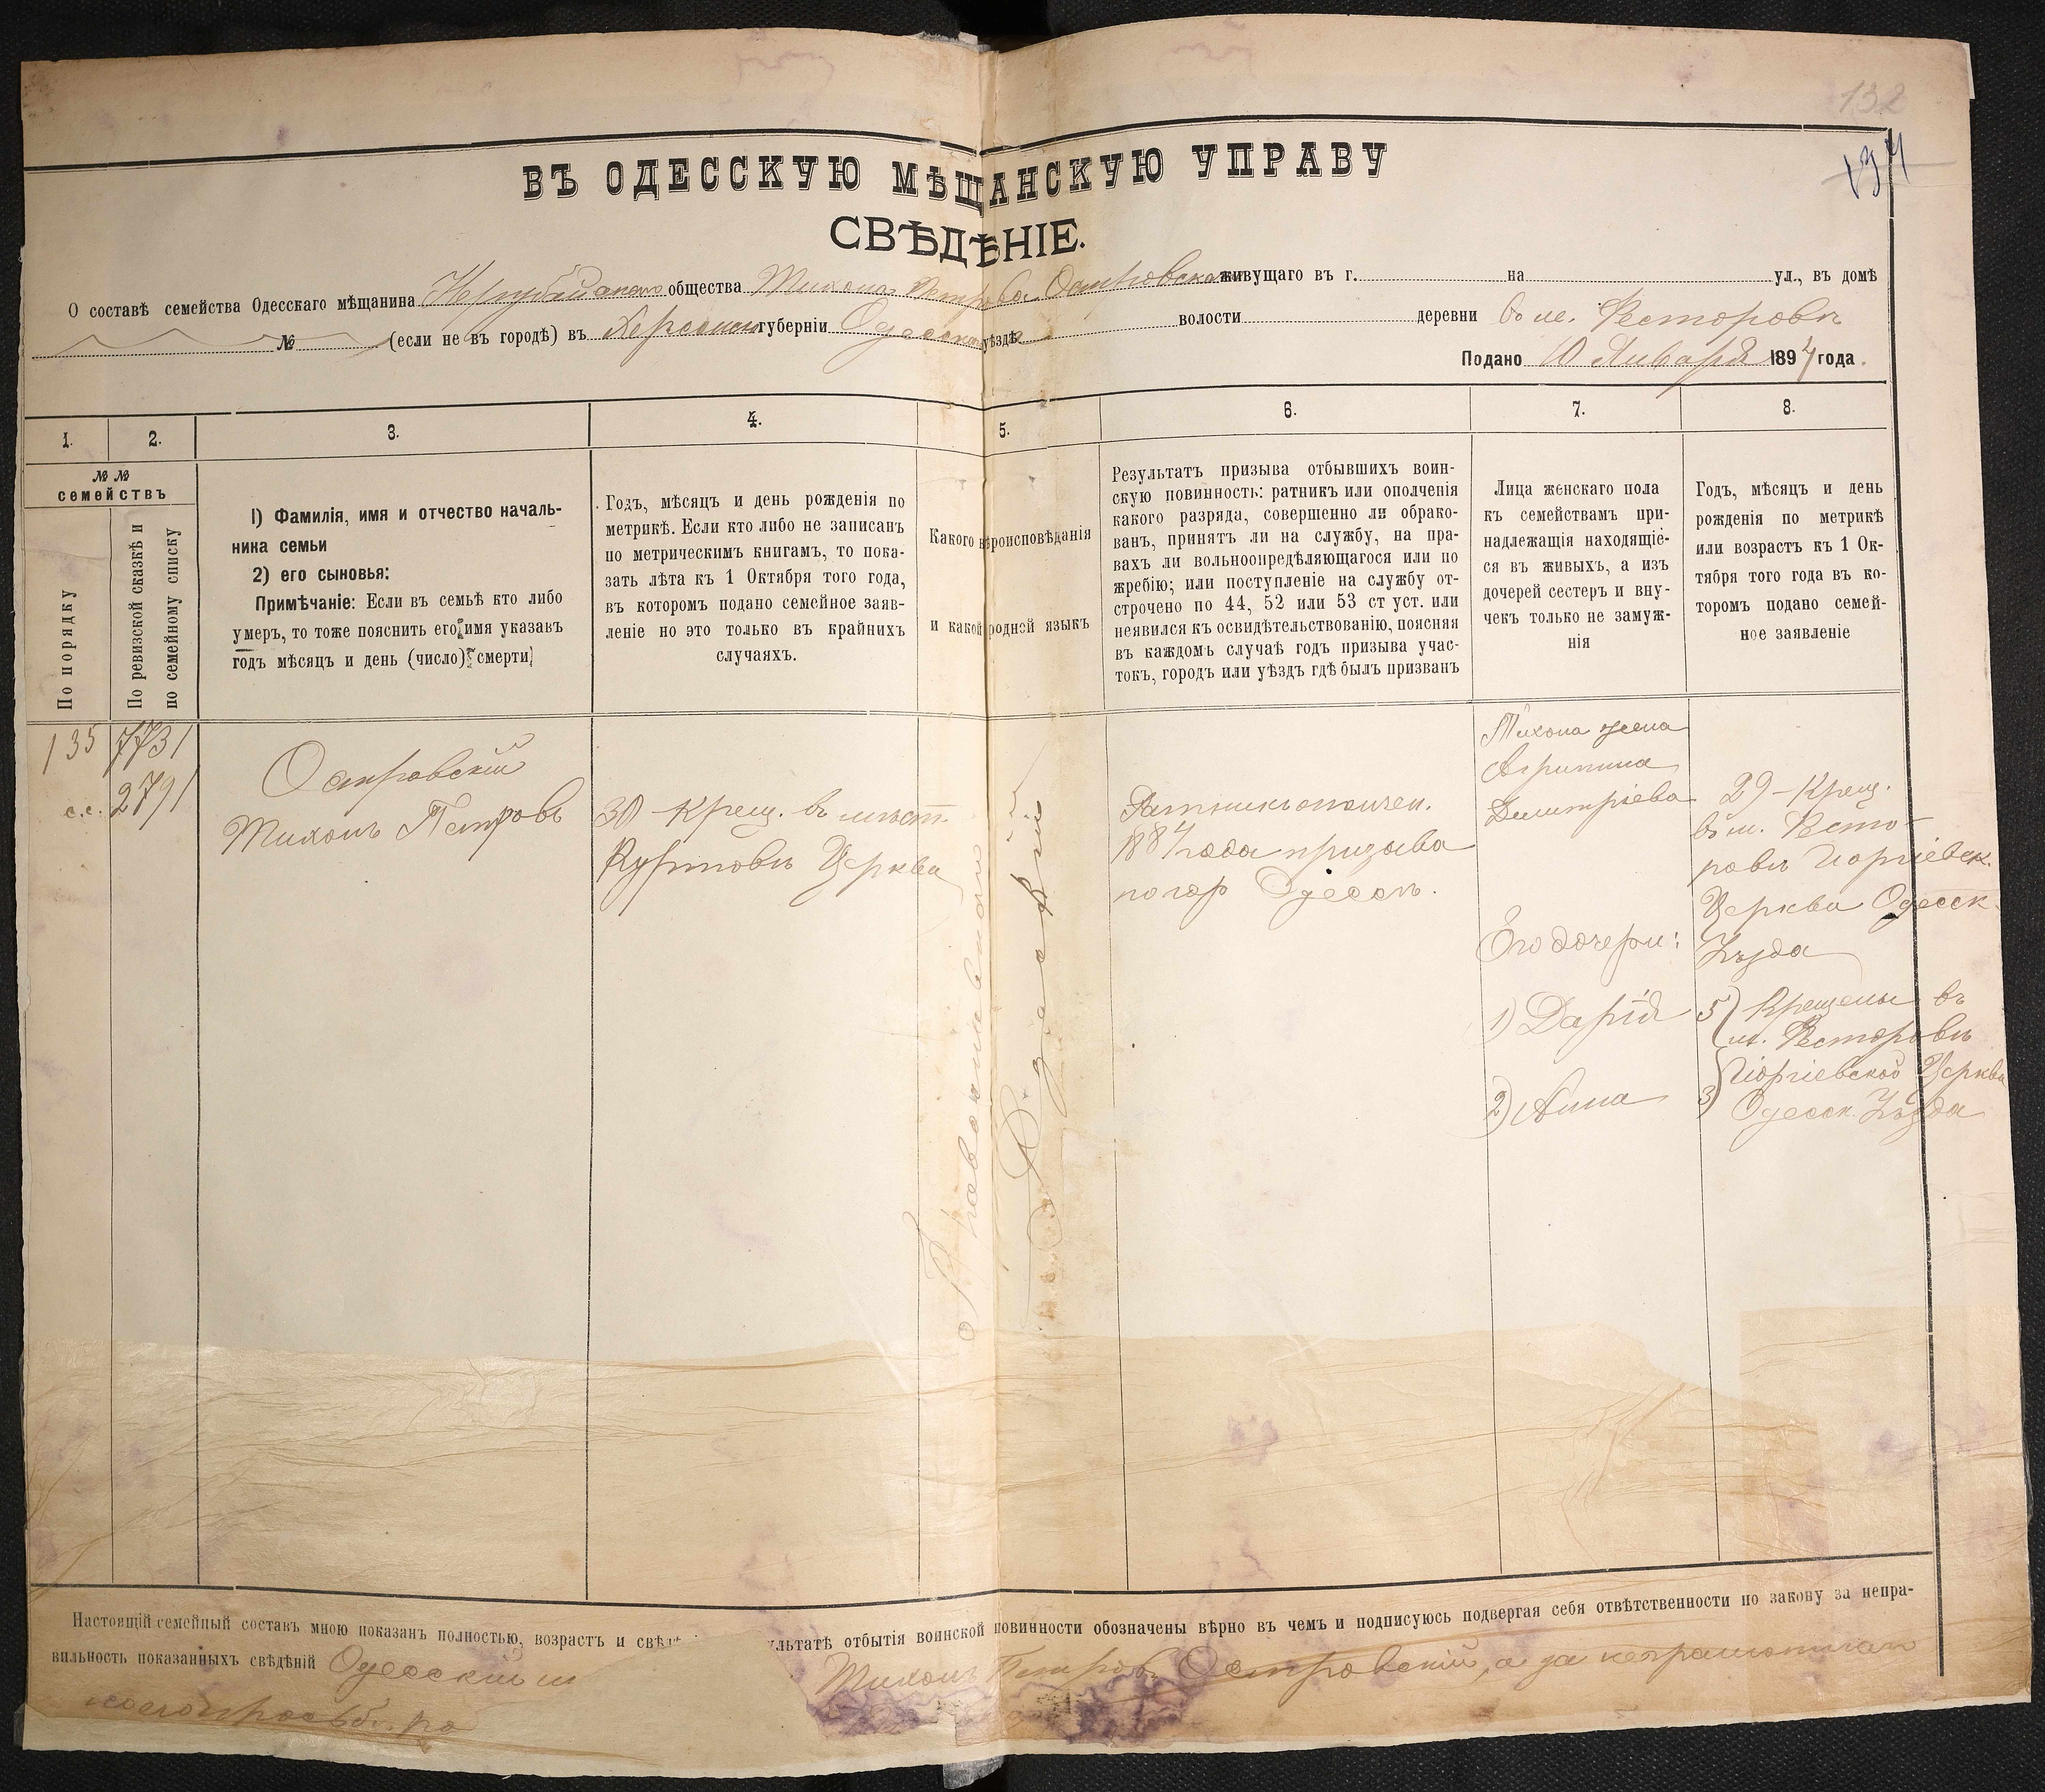 132
134
ВЪ ОДЕССКУЮ МѢЩАНСКУЮ УПРАВУ
СВѢДѢНІЕ.
О составѣ семейства Одесскаго мѣщанина Нерубайскаго общества Тихона Петрова Островскаго живущаго въ г. на ул., въ домѣ
№ (если не въ городѣ) въ Херсонск губерніи Одесскомъ уѣздѣ волости деревни въ м.
Подано 10 Января 1894 года.
1. 2. 3. 4. 5. 6. 7. 8.
№ №
семействъ
По порядку
По ревизской сказкѣ и
по семейному списку
1) Фамилія, имя и отчество началь-
ника семьи
2) его сыновья:
Примѣчаніе: Если въ семьѣ кто либо
умеръ, то тоже пояснить его имя указавъ
годъ мѣсяцъ и день (число) смерти
Годъ, мѣсяцъ и день рожденія по
метрикѣ. Если кто либо не записанъ
по метрическимъ книгамъ, то пока-
зать лѣта къ 1 Октября того года,
въ которомъ подано семейное заяв-
леніе но это только въ крайнихъ
случаяхъ.
Какого вѣроисповѣданія
и какой родной языкъ
Результатъ призыва отбывшихъ воин-
скую повинность: ратникъ или ополченія
какого разряда, совершенно ли обрако-
ванъ, принятъ ли на службу, на пра-
вахъ ли вольноопредѣляющагося или по
жребію; или поступленіе на службу от-
строчено по 44, 52 или 53 ст уст. или
неявился къ освидѣтельствованію, поясняя
въ каждомъ случаѣ годъ призыва учас-
токъ, городъ или уѣздъ гдѣ былъ призванъ
Лица женскаго пола
къ семействамъ при-
надлежащія находящіе-
ся въ живыхъ, а изъ
дочерей сестеръ и вну-
чекъ только не замуж-
нія
Годъ, мѣсяцъ и день
рожденія по метрикѣ
или возрастъ къ 1 Ок-
тября того года въ ко-
торомъ подано семей-
ное заявленіе
135 7731
с.с. 2791
Островскій
Тихонъ Петровъ
30 - Крещ. въ мѣст.
Куртовкѣ Церква
Православнаго
Русскій
Ратникъ ополчен.
1884 года призыва
по гор Одессѣ.
Тихона жена
Агрипина
Димитріева
29 - Крещ.
въ м.
Церква Одесск.
Уѣзда
Его дочери:
1) Дарія
2) Анна
5) Крещены въ
м.
Гіоргіевской Церква
3) Одесск. Уѣзда
Настоящій семейный составъ мною показанъ полностью, возрастъ и свѣдѣ льтатѣ отбытія воинской повинности обозначены вѣрно въ чемъ и подписуюсь подвергая себя отвѣтственности по закону за непра-
вильность показанныхъ свѣдѣній Одесскій м Тихонъ Петровъ Островскій, а за неграмотнаго